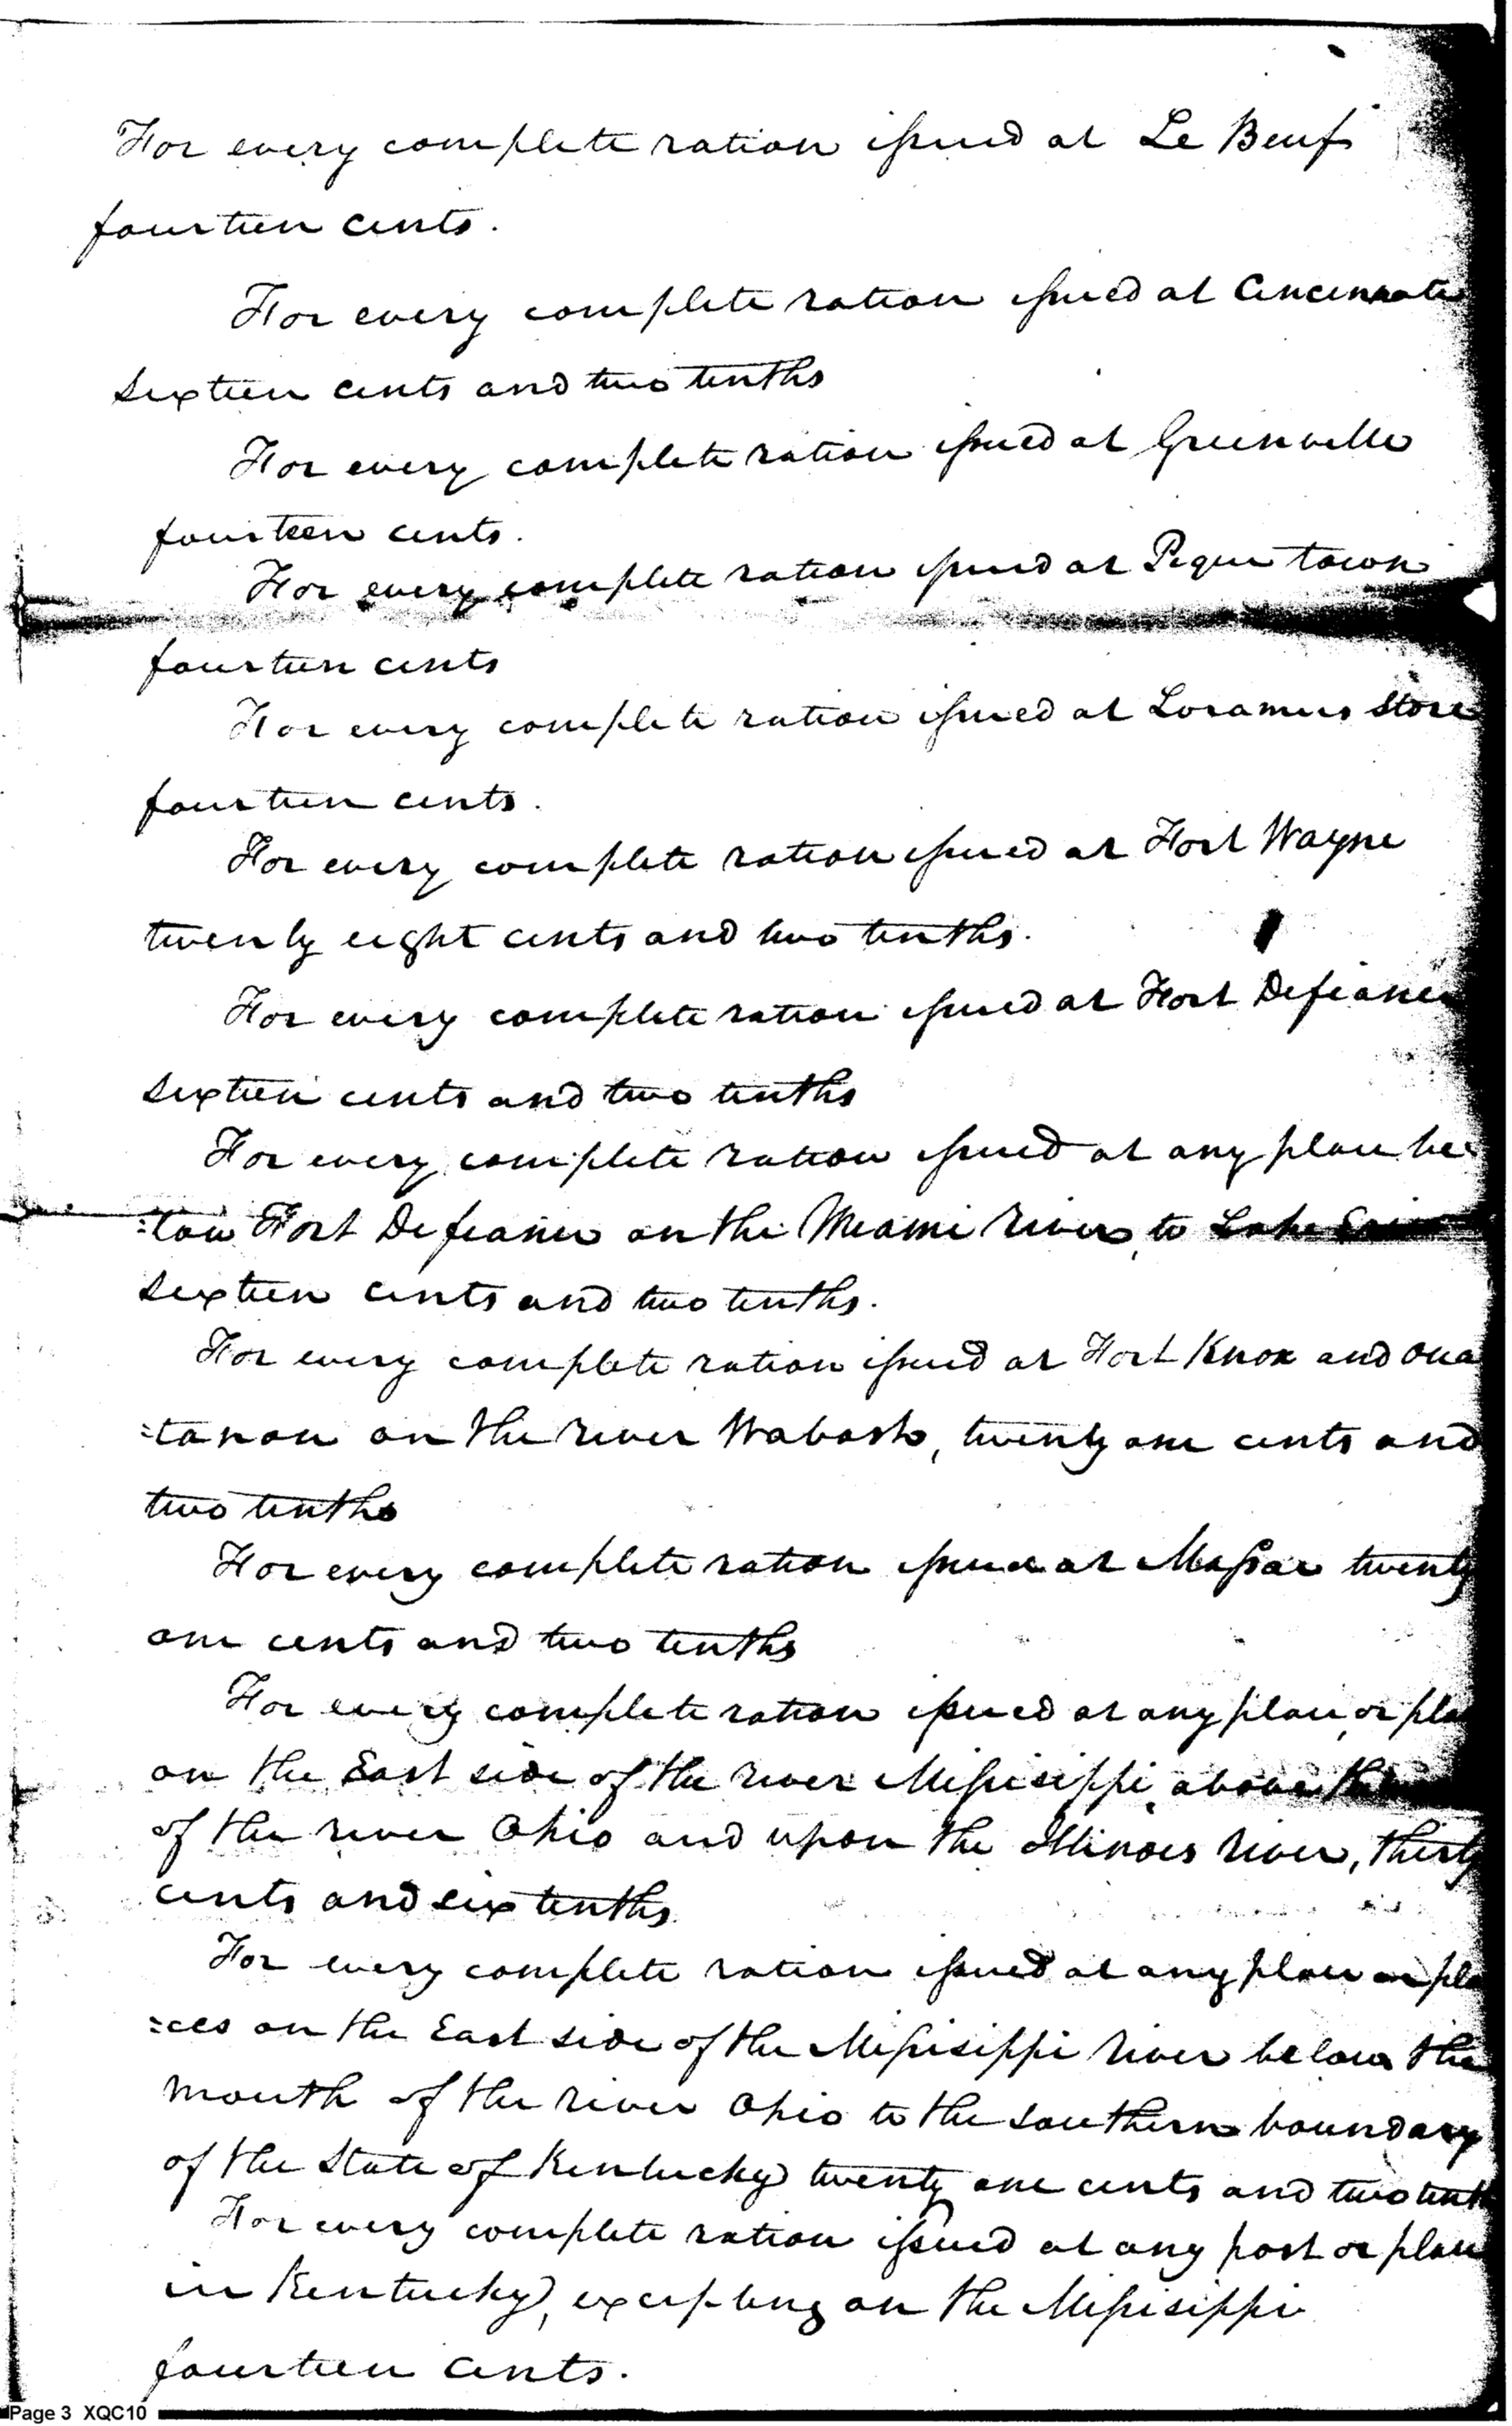 For every complete ration issued at Le Beuf
fourteen cents.
For every complete ration issued at Cincinnati
sixteen cents and two tenths
For every complete ration issued at Greenville
fourteen cents.
For every complete ration issued at Pique town
fourteen cents
For every complete ration issued at Loramus Store
fourteen cents.
For every complete ration issued at Fort Wayne
twenty eight cents and two tenths.
For every complete ration issued at Fort Defiance
sixteen cents and two tenths
For every complete ration issued at any place be
=low Fort Defiance on the Miami river, to Lake Erie
sixteen cents and two tenths.
For every complete ration issued at Fort Knox and Oua
=tanon on the river Wabash, twenty one cents and
two tenths
For every complete ration issued at Massac twenty
one cents and two tenths
For every complete ration issued at any place, or pla
on the East side of the river Missisippi, above the
of the river Ohio and upon the Illinois river, thirty
cents and six tenths.
For every complete ration issued at any place or pla
=ces on the East side of the Missisippi river below the
mouth of the river Ohio to the southern boundary
of the State of Kentucky twenty one cents and two tenth
For every complete ration issued at any post or place
in Kentucky, excepting on the Missisippi
fourteen cents.
Page 3 XQC10